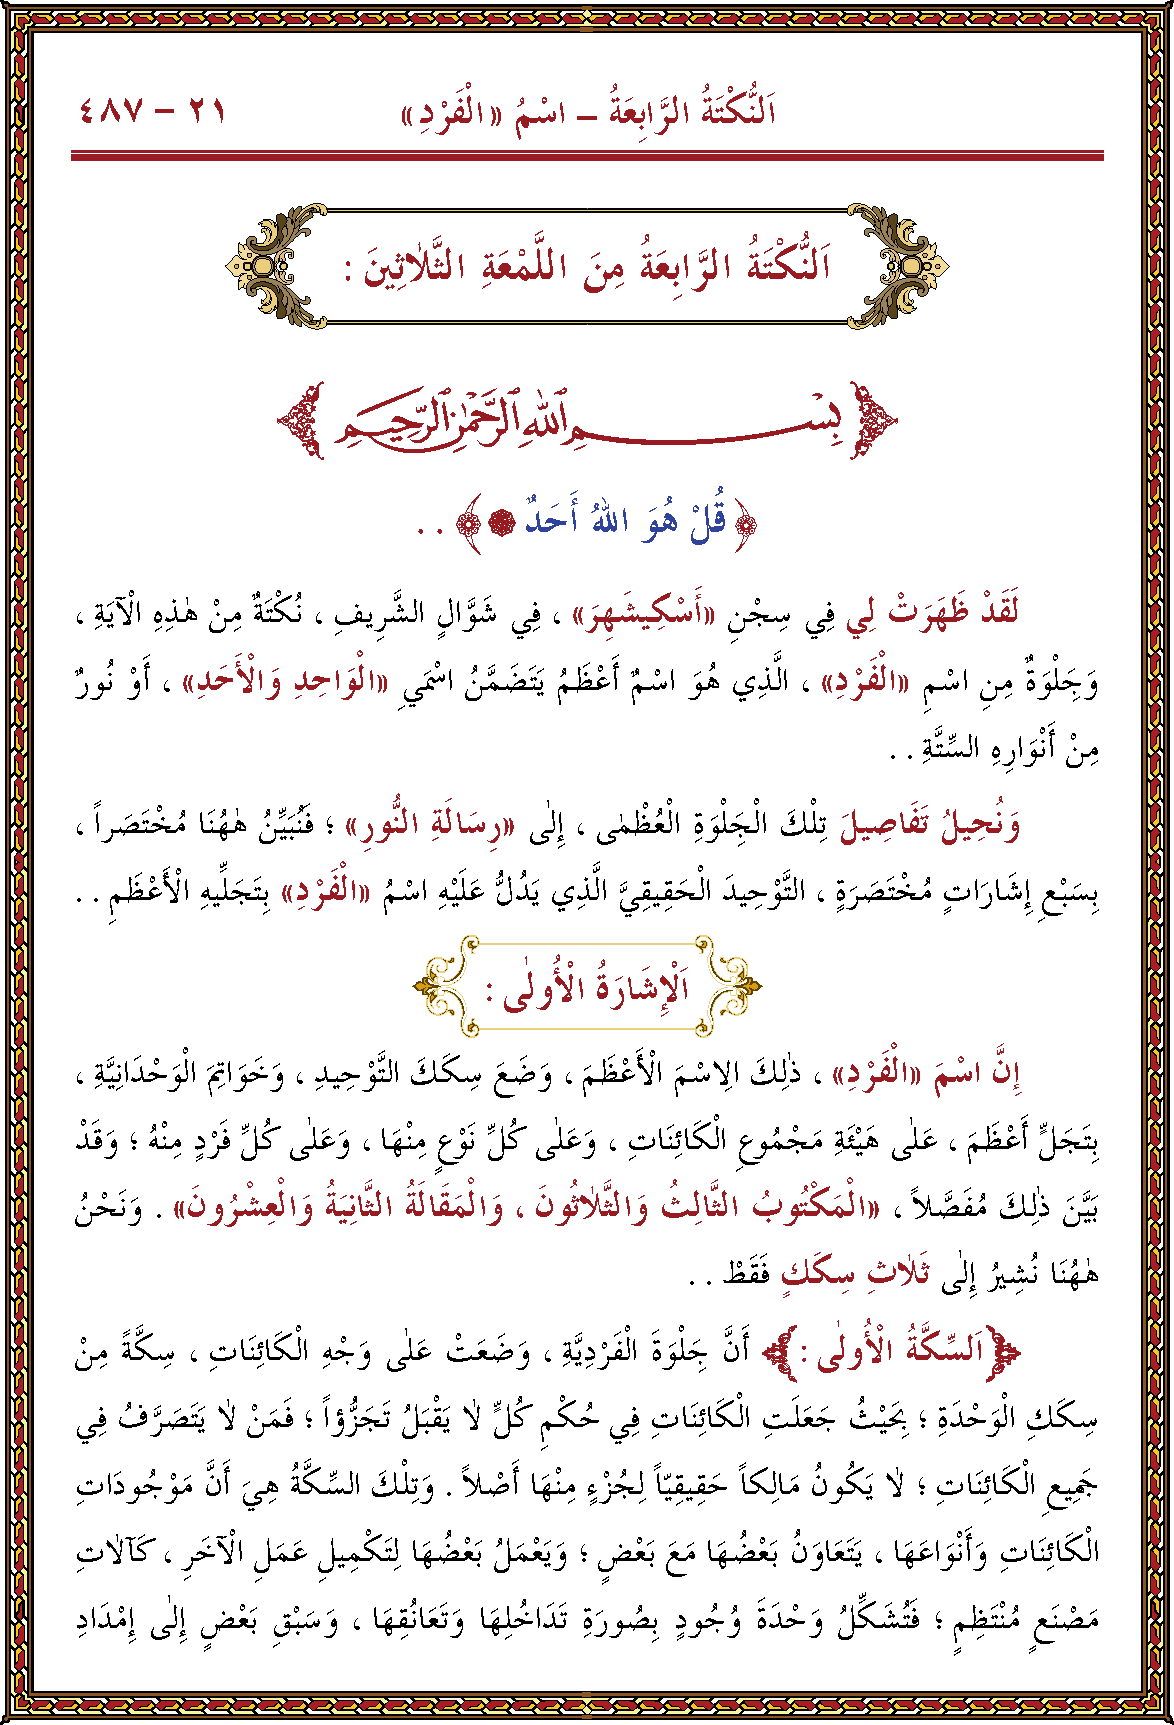 اَلنُّكْتَةُ الرَّابِعَةُ – اسْمُ «الْفَرْدِ» ٢١ – ٤٨٧
اَلنُّكْتَةُ الرَّابِعَةُ مِنَ اللَّمْعَةِ الثَّلَاثِينَ :
بِسْمِ اللهِ الرَّحْمٰنِ الرَّحِيمِ
﴿قُلْ هُوَ اللهُ أَحَدٌ ۝﴾ . .
لَقَدْ ظَهَرَتْ لِي فِي سِجْنِ «أَسْكِيشَهِرَ» ، فِي شَوَّالٍ الشَّرِيفِ ، نُكْتَةٌ مِنْ هٰذِهِ الْآيَةِ ،
وَجَلْوَةٌ مِنِ اسْمِ «الْفَرْدِ» ، الَّذِي هُوَ اسْمٌ أَعْظَمُ يَتَضَمَّنُ اسْمَيِ «الْوَاحِدِ وَالْأَحَدِ» ، أَوْ نُورٌ
مِنْ أَنْوَارِهِ السِّتَّةِ . .
وَنُحِيلُ تَفَاصِيلَ تِلْكَ الْجِلْوَةِ الْعُظْمٰى ، إِلٰى «رِسَالَةِ النُّورِ» ؛ فَنُبَيِّنُ هٰهُنَا مُخْتَصَراً ،
بِسَبْعِ إِشَارَاتٍ مُخْتَصَرَةٍ ، التَّوْحِيدَ الْحَقِيقِيَّ الَّذِي يَدُلُّ عَلَيْهِ اسْمُ «الْفَرْدِ» بِتَجَلِّيهِ الْأَعْظَمِ . .
اَلْإِشَارَةُ الْأُولٰى :
إِنَّ اسْمَ «الْفَرْدِ» ، ذٰلِكَ الِاسْمَ الْأَعْظَمَ ، وَضَعَ سِكَكَ التَّوْحِيدِ ، وَخَوَاتِمَ الْوَحْدَانِيَّةِ ،
بِتَجَلٍّ أَعْظَمَ ، عَلٰى هَيْئَةِ مَجْمُوعِ الْكَائِنَاتِ ، وَعَلٰى كُلِّ نَوْعٍ مِنْهَا ، وَعَلٰى كُلِّ فَرْدٍ مِنْهُ ؛ وَقَدْ
بَيَّنَ ذٰلِكَ مُفَصَّلاً ، «الْمَكْتُوبُ الثَّالِثُ وَالثَّلَاثُونَ ، وَالْمَقَالَةُ الثَّانِيَةُ وَالْعِشْرُونَ» . وَنَحْنُ
هٰهُنَا نُشِيرُ إِلٰى ثَلَاثِ سِكَكٍ فَقَطْ . .
اَلسِّكَّةُ الْأُولٰى : أَنَّ جَلْوَةَ الْفَرْدِيَّةِ ، وَضَعَتْ عَلٰى وَجْهِ الْكَائِنَاتِ ، سِكَّةً مِنْ
سِكَكِ الْوَحْدَةِ ؛ بِحَيْثُ جَعَلَتِ الْكَائِنَاتِ فِي حُكْمِ كُلٍّ لَا يَقْبَلُ تَجَزُّؤاً ؛ فَمَنْ لَا يَتَصَرَّفُ فِي
جَمِيعِ الْكَائِنَاتِ ؛ لَا يَكُونُ مَالِكاً حَقِيقِيّاً لِجُزْءٍ مِنْهَا أَصْلاً . وَتِلْكَ السِّكَّةُ هِيَ أَنَّ مَوْجُودَاتِ
الْكَائِنَاتِ وَأَنْوَاعَهَا ، يَتَعَاوَنُ بَعْضُهَا مَعَ بَعْضٍ ؛ وَيَعْمَلُ بَعْضُهَا لِتَكْمِيلِ عَمَلِ الْآخَرِ ، كَآلَاتِ
مَصْنَعٍ مُنْتَظِمٍ ؛ فَتُشَكِّلُ وَحْدَةَ وُجُودٍ بِصُورَةِ تَدَاخُلِهَا وَتَعَانُقِهَا ، وَسَبْقِ بَعْضٍ إِلٰى إِمْدَادِ